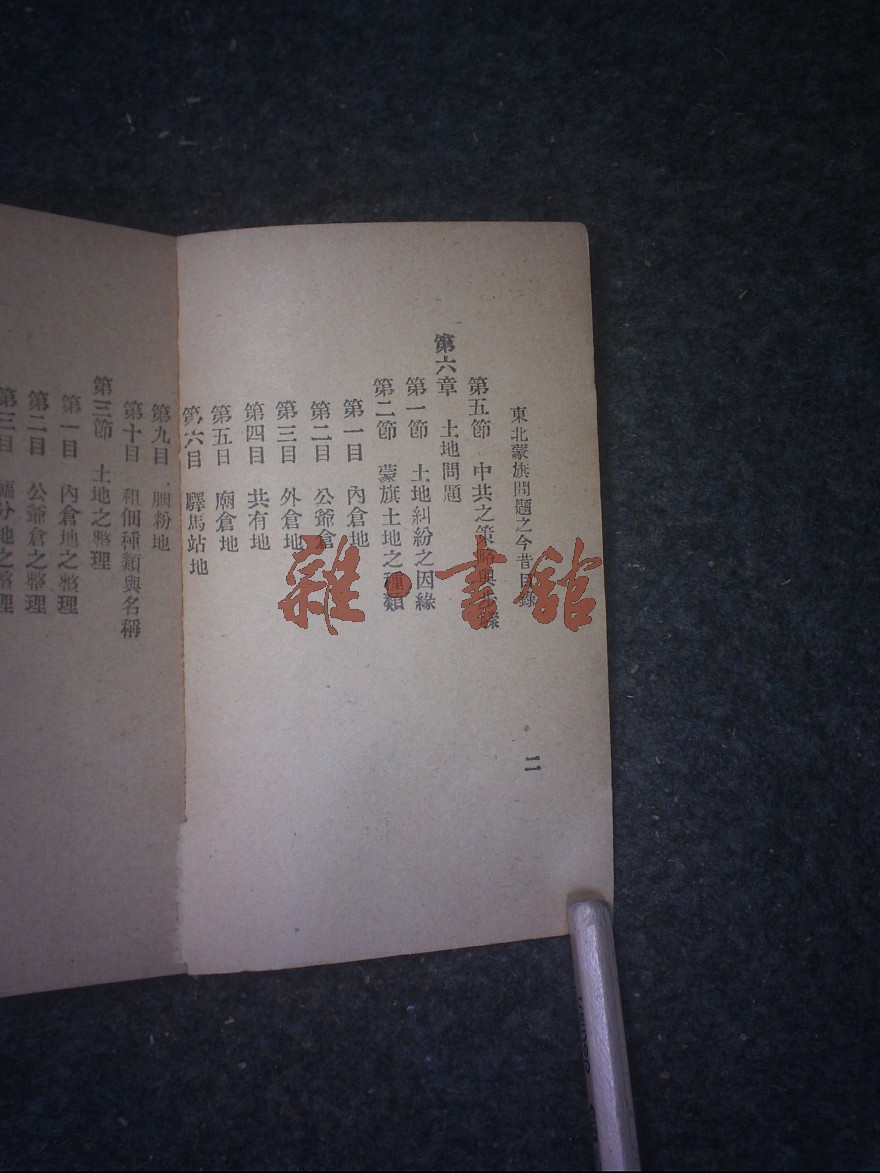 東北蒙旗問題之今昔目錄
二
第五節 中共之策略與
第六章 土地問題
第一節 土地糾紛之因緣
第二節 蒙旗土地之種類
第一目 內倉地
第二目 公爺倉
第三目 外倉地
第四目 共有地
第五目 廟倉地
第六目 驛馬站地
第九目 胭粉地
第十目 租佃種類與名稱
第三節 土地之整理
第一目 內倉地之整理
第二目 公爺倉之整理
第三目 福分地之整理
雜·書館